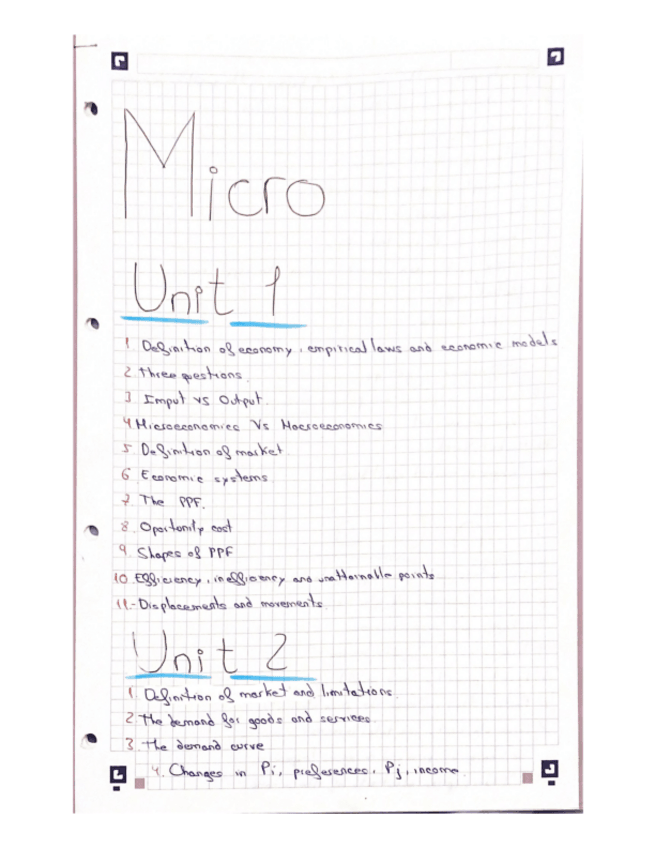 Micro
Unit 1
1. Definition of economy, empirical laws and economic models
2. Three questions.
3 Imput vs Output.
4 Microeconomics Vs Macroeconomics
5. Definition of market
6 Economic systems
7. The PPF.
8. Oportunity cost
9. Shapes of PPF
10. Efficiency, inefficiency and unattainable points
11.- Displacements and movements
Unit 2
1. Definition of market and limitations.
2 The demand for goods and services.
3. The demand curve
4. Changes in Pi, preferences, Pj, income.